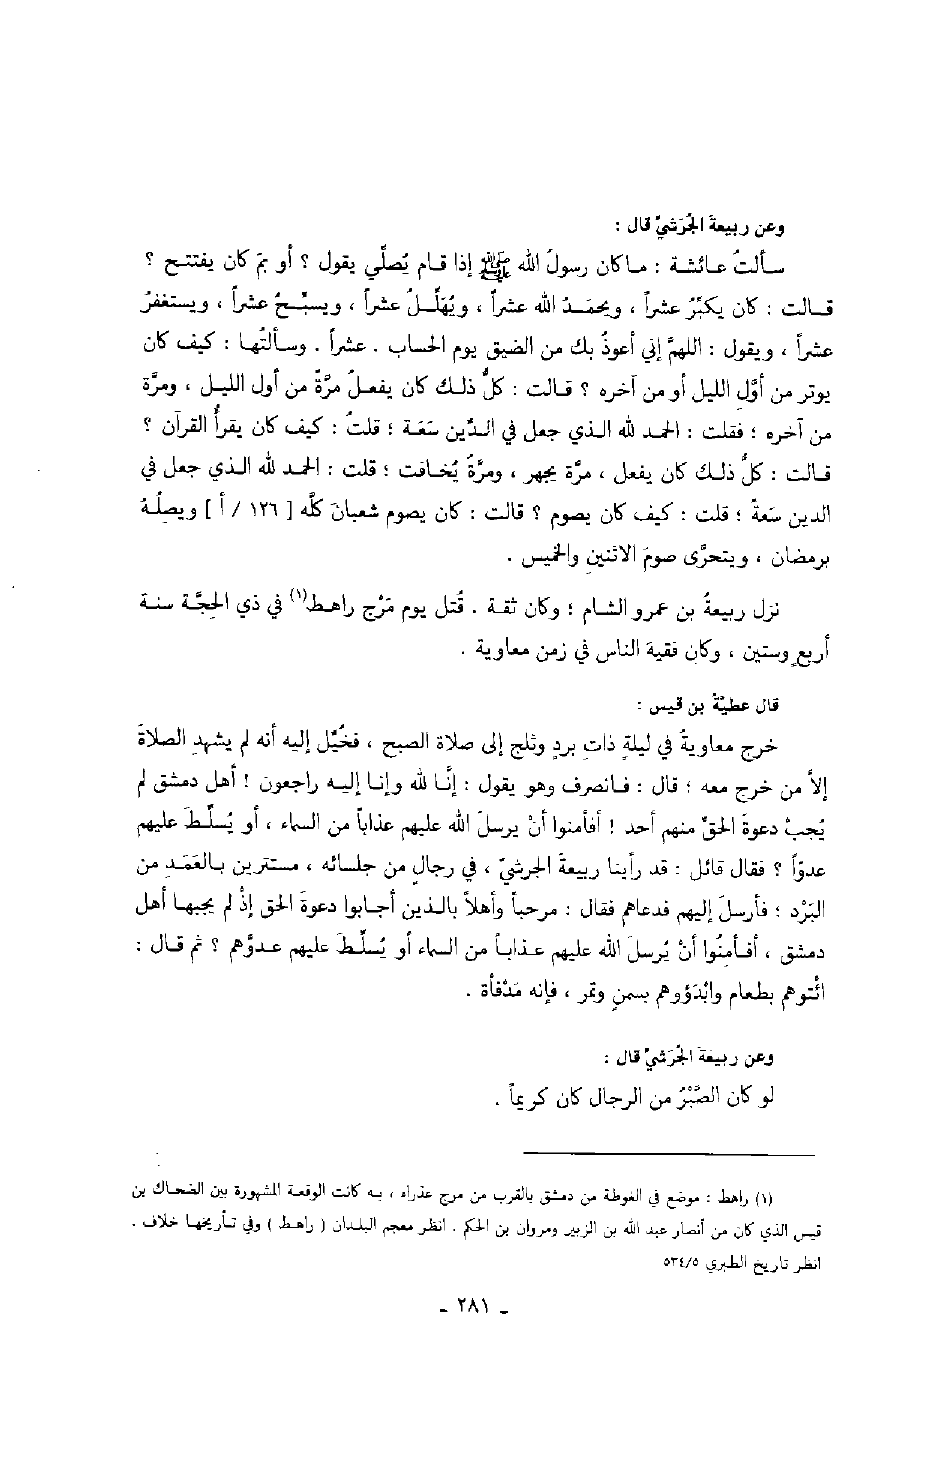 وعن ربيعةَ الجُرَشيّ قال :
سألتُ عائشة : ما كان رسولُ الله ﷺ إذا قام يُصلّي يقول ؟ أو بمَ كان يفتتح ؟
قالت : كان يكبّرُ عشراً ، ويحمَدُ الله عشراً ، ويُهَلِّلُ عشراً ، ويسبِّحُ عشراً ، ويستغفرُ
عشراً ، ويقول : اللهمَّ إني أعوذُ بك من الضيق يوم الحساب . عشراً . وسألتُها : كيف كان
يوتر من أوَّل الليل أو من آخره ؟ قالت : كلُّ ذلك كان يفعلُ مرَّةً من أول الليل ، ومرَّة
من آخره ؛ فقلت : الحمد لله الذي جعل في الدِّين سَعَة ؛ قلتُ : كيف كان يقرأُ القرآن ؟
قالت : كلُّ ذلك كان يفعل ، مرَّة يجهر ، ومرَّةً يُخافت ؛ قلت : الحمد لله الذي جعل في
الدين سَعةً ؛ قلت : كيف كان يصوم ؟ قالت : كان يصوم شعبانَ كلَّه [ ١٢٦ / أ ] ويصلُهُ
برمضان ، ويتحرَّى صومَ الاثنينِ والخميس .
نزل ربيعةُ بن عمرو الشام ؛ وكان ثقة . قُتل يوم مَرْج راهط(١) في ذي الحِجَّة سنة
أربعٍ وستين ، وكان فقيهَ الناس في زمن معاوية .
قال عطيّةُ بن قيس :
خرج معاويةُ في ليلةٍ ذاتِ بردٍ وثلج إلى صلاة الصبح ، فخُيِّل إليه أنه لم يشهدِ الصلاةَ
إلاّ من خرج معه ؛ قال : فانصرف وهو يقول : إنَّا لله وإنا إليه راجعون ! أهل دمشق لم
يُجبْ دعوةَ الحقِّ منهم أحد ! أفأمنوا أنْ يرسلَ الله عليهم عذاباً من السماء ، أو يُسلِّطَ عليهم
عدوّاً ؟ فقال قائل : قد رأينا ربيعةَ الجرشيّ ، في رجالٍ من جلسائه ، مستترين بالعَمَدِ من
البَرْد ؛ فأرسلَ إليهم فدعاهم فقال : مرحباً وأهلاً بالذين أجابوا دعوةَ الحق إذْ لم يجبها أهل
دمشق ، أفأمِنُوا أنْ يُرسلَ الله عليهم عذاباً من السماء أو يُسلِّطَ عليهم عدوَّهم ؟ ثم قال :
ائْتوهم بطعام وابْدَؤوهم بسمنٍ وتمر ، فإنه مَدْفأة .
وعن ربيعةَ الجُرَشيّ قال :
لو كان الصَّبْرُ من الرجال كان كريماً .
(١) راهط : موضع في الغوطة من دمشق بالقرب من مرج عذراء ، به كانت الوقعة المشهورة بين الضحاك بن
قيس الذي كان من أنصار عبد الله بن الزبير ومروان بن الحكم . انظر معجم البلدان ( راهط ) وفي تأريخها خلاف .
انظر تاريخ الطبري ٥٣٤/٥
ـ ٢٨١ ـ